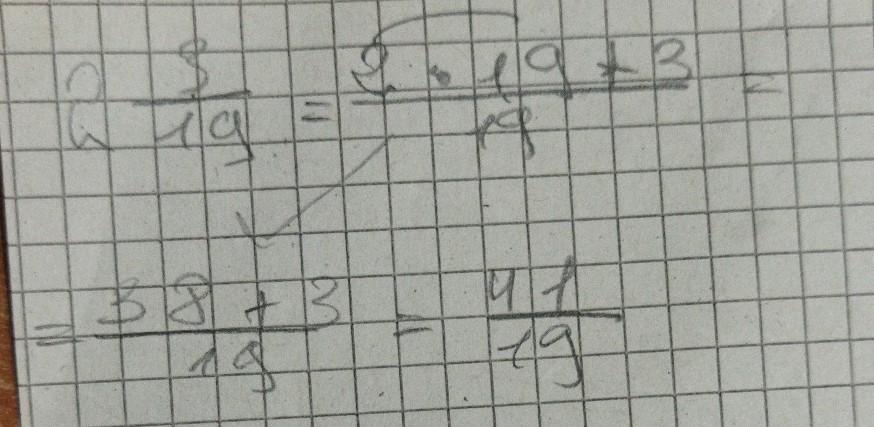 2 3/19 = (2 · 19 + 3)/19 =
= (38 + 3)/19 = 41/19